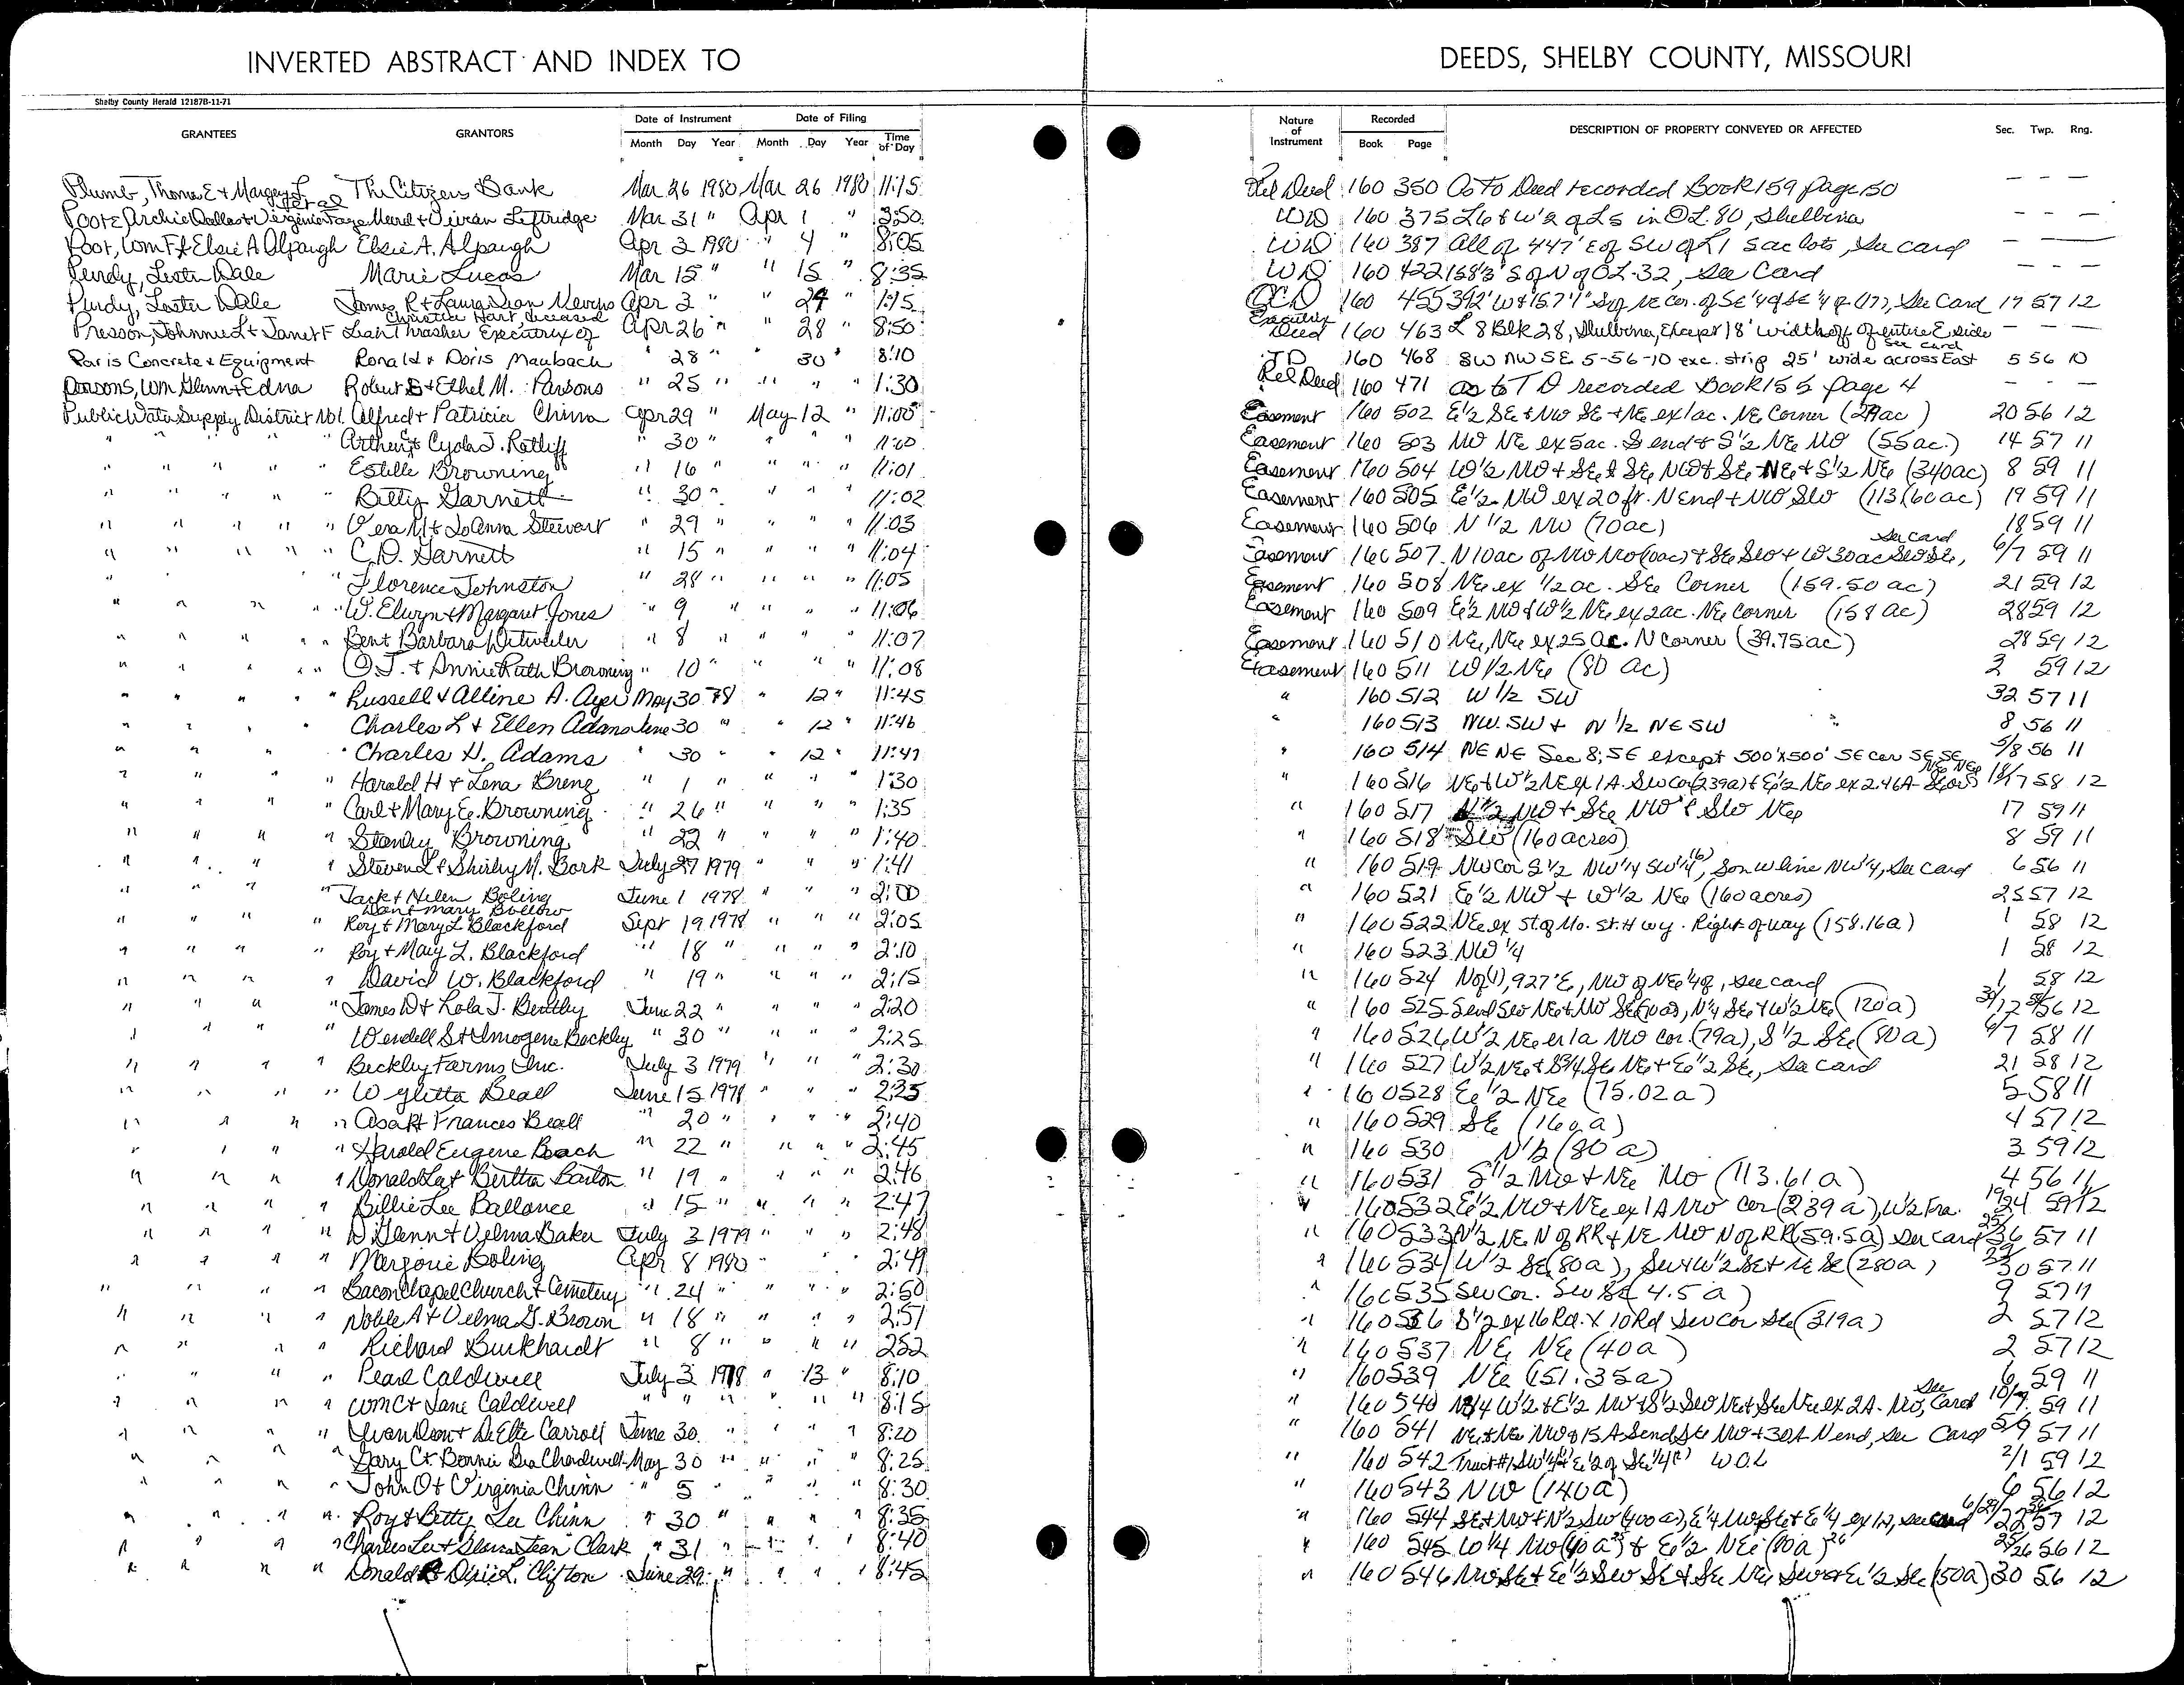 INVERTED ABSTRACT AND INDEX TO
DEEDS, SHELBY COUNTY, MISSOURI
Shelby County Herald 12187B-11-71
GRANTEES GRANTORS Date of Instrument Month Day Year Date of Filing Month Day Year Time of Day Nature of Instrument Recorded Book Page DESCRIPTION OF PROPERTY CONVEYED OR AFFECTED Sec. Twp. Rng.
Plumb, Thomas E + Margery L et al The Citizens Bank Mar 26 1980 Mar 26 1980 11:15 Rel Deed 160 350 As To Deed recorded Book 159 page 150 - - -
Poore, Archie Dallas + Virginia Faye Maud + Vivian Leftridge Mar 31 " Apr 1 " 3:50 WD 160 375 L6 + W½ of L5 in OL 80, Shelbina - - -
Poot, Wm F + Elsie A Alpaugh Elsie A. Alpaugh Apr 3 1980 " 4 " 8:05 WD 160 387 All of 447' E of SW of L1 sac lots, See card - -
Purdy, Lester Dale Marie Lucas Mar 15 " " 15 " 8:35 WD 160 422 168½' S of N of OL-32, See Card - - -
Purdy, Lester Dale James R + Laura Jean Nevins Apr 3 " " 24 " 1:15 QCD 160 455 392' W + 15.7'1" S of NE cor. of SE ¼ of SE ¼ of (17), See Card 17 57 12
Presson, Johnnie L + Janet F Leah Thrasher Executrix of Christia Hart deceased Apr 26 " " 28 " 8:50 Executrix Deed 160 463 L 8 Blk 28, Shelbina, Except 18' width off of entire E side - - -
Paris Concrete + Equipment Ronald + Doris Maubach " 28 " " 30 " 8:10 TD 160 468 SW NW SE 5-56-10 exc. strip 25' wide across East see card 5 56 10
Parsons, Wm Glenn + Edna Robert E + Ethel M. Parsons " 25 " " " " 1:30 Rel Deed 160 471 as to TD recorded Book 155 page 4 - - -
Public Water Supply District No1. Alfred + Patricia Chinn Apr 29 " May 12 " 11:00 Easement 160 502 E½ SE + NW SE + NE ex 1ac. NE Corner (279ac) 20 56 12
" " " " " Arthur + Cyola J. Ratliff " 30 " " " " 11:00 Easement 160 503 NW NE ex 5ac. S end + S½ NE NW (55ac.) 14 57 11
" " " " " Estille Browning " 16 " " " " 11:01 Easement 160 504 W½ NW + SE + SE NW + SE NE + S½ NE (340ac) 8 59 11
" " " " " Billy Garnett " 30 " " " " 11:02 Easement 160 505 E½ NW ex 20 ft. N End + NW SW (113.60ac) 19 59 11
" " " " " Vera M + JoAnna Stewart " 29 " " " " 11:03 Easement 160 506 N ½ NW (70ac) 18 59 11
" " " " " C.D. Garnett " 15 " " " " 11:04 Easement 160 507 N 10ac of NW NW (10ac) + SE SW + W 30ac SW SE, See card 6/7 59 11
" " Florence Johnston " 28 " " " " 11:05 Easement 160 508 NE ex ½ ac. SE Corner (159.50 ac) 21 59 12
" " " " W. Elwyn + Margaret Jones " 9 " " " " 11:06 Easement 160 509 E½ NW + W½ NE ex 2ac. NE Corner (158 ac) 28 59 12
" " " " Ben + Barbara Detweiler " 8 " " " " 11:07 Easement 160 510 NE, NE ex .25 ac. N Corner (39.75ac) 28 59 12
" " " " O.J. + Annie Ruth Browning " 10 " " " " 11:08 Easement 160 511 W ½ NE (80 ac) 2 59 12
" " " " Russell + Alline A. Ayer May 30 78 " 12 " 11:45 " 160 512 W ½ SW 32 57 11
" " " Charles L + Ellen Adams June 30 " " 12 " 11:46 " 160 513 NW SW + N ½ NE SW 8 56 11
" " " " Charles H. Adams " 30 " " 12 " 11:47 " 160 514 NE NE Sec 8; SE except 500'x500' SE cor SE SE 5/8 56 11
" " " " Harold H + Lena Breng " 1 " " " " 1:30 " 160 516 NE + W½ NE ex 1A. SW Cor (239a) + E½ NE ex 2.46A 18/7 58 12
" " " " Carl + Mary E. Browning " 26 " " " " 1:35 " 160 517 N½ NW + SE NW + SW NE 17 59 11
" " " " Stanley Browning " 22 " " " " 1:40 " 160 518 SW (160 acres) 8 59 11
" " " " Steven L + Shirley M. Bork July 27 1979 " " " 1:41 " 160 519 NW Cor S ½ NW ¼ SW ¼ (6), S on W line NW ¼, See card 6 56 11
" " " " Jack + Helen Boling June 1 1978 " " " 2:00 " 160 521 E½ NW + W½ NE (160 acres) 25 57 12
" " " " Dan + Mary Bollow Roy + Mary L Blackford Sept 19 1978 " " " 2:05 " 160 522 NE ex St. of Mo. St. Hwy. Right of way (158.16a) 1 58 12
" " " " Roy + Mary L. Blackford " 18 " " " " 2:10 " 160 523 NW ¼ 1 58 12
" " " " David W. Blackford " 19 " " " " 2:15 " 160 524 N of (1), 927' E, NW of NE ¼ of, see card 1 58 12
" " " " James D + Lola J. Bentley June 22 " " " " 2:20 " 160 525 S end SW NE + NW SE (100a), N¼ SE + W½ NE (120a)
" " " " Wendell S + Imogene Beckley " 30 " " " " 2:25 " 160 526 W½ NE ex 1a NW cor. (79a), S ½ SE (80a) 6/7 58 11
" " " " Beckley Farms Inc. July 3 1979 " " " 2:30 " 160 527 W½ NE + S¾ SE NE + E½ SE, See card 21 58 12
" " " " Wyletta Beall June 15 1978 " " " 2:35 " 160 528 E ½ NE (75.02a) 5 58 11
" " " " Asa R + Frances Beall " 20 " " " " 2:40 " 160 529 SE (160a) 4 57 12
" " " " Harold Eugene Beach " 22 " " " " 2:45 " 160 530 N½ (80 a) 3 59 12
" " " " Donald La + Bertha Barton " 19 " " " " 2:46 " 160 531 S½ NW + NE NW (113.61a) 4 56 11
" " " " Billie Lee Ballance " 15 " " " " 2:47 " 160 532 E½ NW + NE ex 1A NW Cor (239a), W½ Fra. 19/24 59 12
" " " " D. Glenn + Velma Baker July 3 1979 " " " 2:48 " 160 533 N½ NE N of RR + NE NW N of RR (59.5a) See card 25/36 57 11
" " " " Marjorie Boling Apr 8 1980 " " " 2:49 " 160 534 W½ SE (80a), SW + W½ SE + NE SE (280a) 29/30 57 11
" " " " Bacon Chapel Church + Cemetery " 24 " " " " 2:50 " 160 535 SW Cor. SW SE (4.5a) 9 57 11
" " " " Noble A + Velma G. Brown " 18 " " " " 2:51 " 160 536 S½ ex 16 Rd. x 10 Rd SW Cor SE (319a) 2 57 12
" " " " Richard Burkhardt " 8 " " " " 2:52 " 160 537 NE NE (40a) 2 57 12
" " " " Pearl Caldwell July 3 1978 " 13 " 8:10 " 160 539 NE (151.35a) 6 59 11
" " " " Wm C + Jane Caldwell " " " " " " 8:15 " 160 540 N¾ W½ + E½ NW + S½ SW NE + SE NE ex 2A. NW, See Card 10/9 59 11
" " " " Ivan Don + DeEtte Carroll June 30 " " " " 8:20 " 160 541 NE + NE NW + 15A S end SE NW + 30A N end, See Card 5/9 57 11
" " " " Gary C + Bonnie Dea Chardwell May 30 " " " " 8:25 " 160 542 Tract #1 SW ¼ E½ of SE ¼ W.O.L 2/1 59 12
" " " " John O + Virginia Chinn " 5 " " " " 8:30 " 160 543 NW (140a) 6 56 12
" " " " Roy + Betty Lee Chinn " 30 " " " " 8:35 " 160 544 SE + NW + N½ SW (400a), E¼ NW SE + E¼ ex 1a, see card 57 12
" " " " Charles Lee + Glenna Jean Clark " 31 " " " " 8:40 " 160 545 W ¼ NW (40a) + E½ NE (80a) 25/26 56 12
" " " " Donald R + Dixie L. Clifton June 29 " " " " 8:45 " 160 546 NW SE + E½ SW SE + SE NE SW + E½ SE (150a) 30 56 12